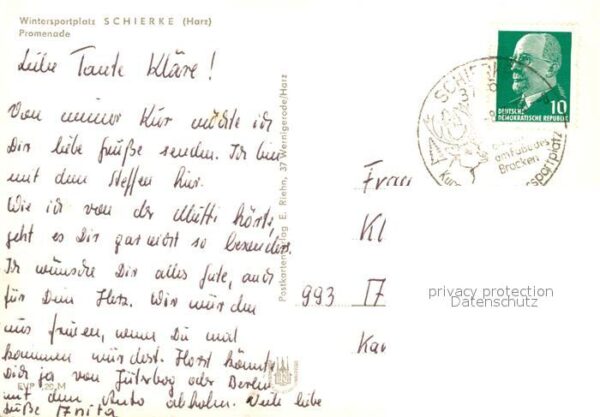 Wintersportplatz SCHIERKE (Harz)
Promenade
Liebe Tante Kläre!
Von meiner Kur möchte ich
Dir liebe Grüße senden. Ich bin
mit dem Steffen hier.
Wie ich von der Mutti hörte,
geht es Dir gar nicht so besonders.
Ich wünsche Dir alles Gute, auch
für Dein Herz. Wir würden
uns freuen, wenn Du mal
kommen würdest. Horst könnte
Dich ja von Jüterbog oder Berlin
mit dem Auto abholen. Viele liebe
Grüße Anita
EVP 0,20 M
Postkartenverlag E. Riehn, 37 Wernigerode/Harz
SCHIERKE
am Fuße des
Brocken
DEUTSCHE
DEMOKRATISCHE REPUBLIK
10
Frau
Kl
993
Kar
privacy protection
Datenschutz